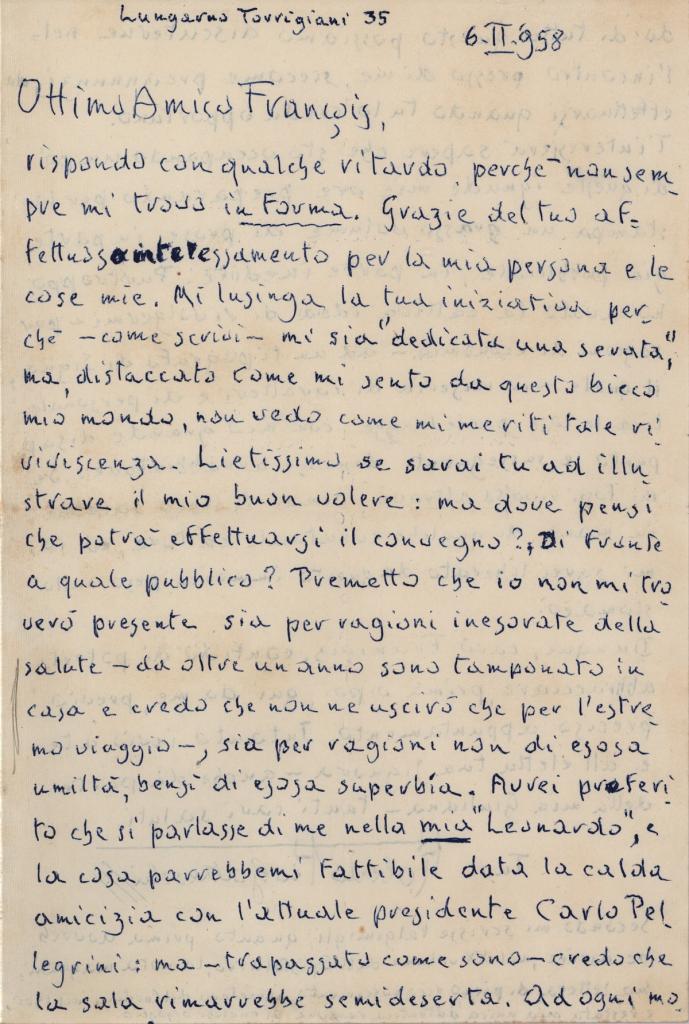 Lungarno Torrigiani 35
6.II.958
Ottimo Amico François,
rispondo con qualche ritardo, perchè non sem
pre mi trovo in forma. Grazie del tuo af-
fettuoso interessamento per la mia persona e le
cose mie. Mi lusinga la tua iniziativa per-
chè – come scrivi – mi sia "dedicata una serata",
ma, distaccato come mi sento da questo bieco
mio mondo, non vedo come mi meriti tale ri
viviscenza. Lietissimo se sarai tu ad illu-
strare il mio buon volere: ma dove pensi
che potrà effettuarsi il convegno?, Di fronte
a quale pubblico? Premetto che io non mi tro
verò presente sia per ragioni inesorate della
salute – da oltre un anno sono tamponato in
casa e credo che non ne uscirò che per l'estre
mo viaggio –, sia per ragioni non di esosa
umiltà, bensì di esosa superbia. Avrei preferi
to che si parlasse di me nella mia "Leonardo", e
la cosa parrebbemi fattibile data la calda
amicizia con l'attuale presidente Carlo Pel
legrini: ma – trapassato come sono – credo che
la sala rimarrebbe semideserta. Ad ogni mo